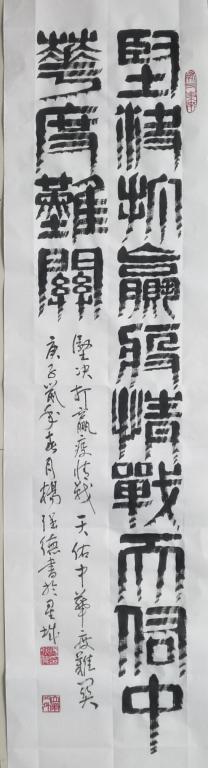 堅決打贏疫情戰天佑中
華度難關
堅决打贏疫情战天佑中華度難关
庚子鼠年春月楊强德書於星城